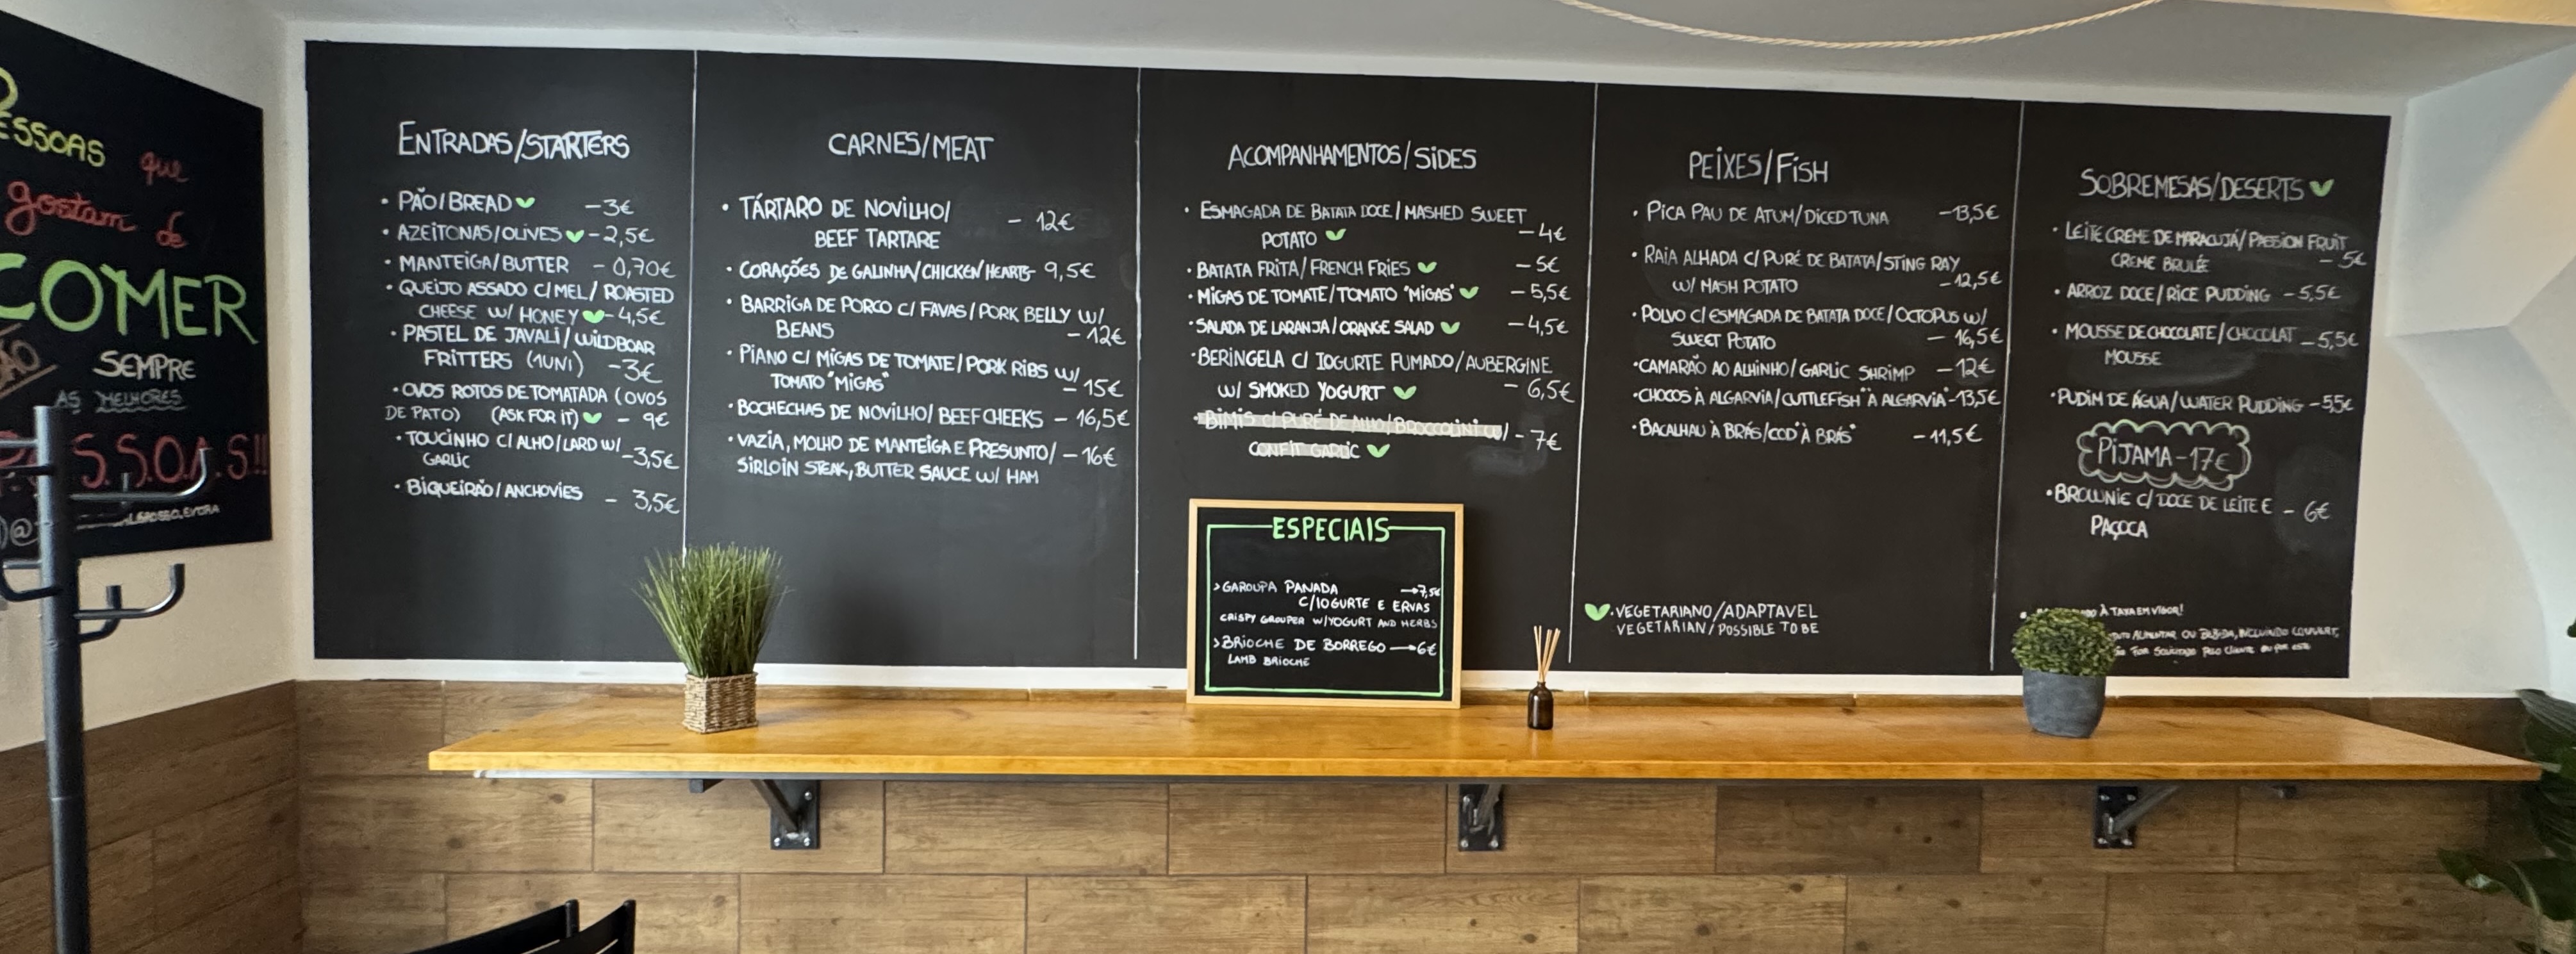 ESSOAS que
gostam de
COMER
SEMPRE
AS MELHORES
S.S.O.A.S!!
ENTRADAS/STARTERS
• PÃO/BREAD -3€
• AZEITONAS/OLIVES -2,5€
• MANTEIGA/BUTTER - 0,70€
• QUEIJO ASSADO C/MEL/ ROASTED
CHEESE W/ HONEY -4,5€
• PASTEL DE JAVALI/WILDBOAR
FRITTERS (1UNI) -3€
• OVOS ROTOS DE TOMATADA (OVOS
DE PATO) (ASK FOR IT) - 9€
• TOUCINHO C/ALHO/LARD W/
GARLIC -3,5€
• BIQUEIRÃO/ANCHOVIES - 3,5€
CARNES/MEAT
• TÁRTARO DE NOVILHO/ - 12€
BEEF TARTARE
• CORAÇÕES DE GALINHA/CHICKEN/HEARTS- 9,5€
• BARRIGA DE PORCO C/ FAVAS/PORK BELLY W/
BEANS - 12€
• PIANO C/ MIGAS DE TOMATE/PORK RIBS W/
TOMATO "MIGAS" - 15€
• BOCHECHAS DE NOVILHO/ BEEF CHEEKS - 16,5€
• VAZIA, MOLHO DE MANTEIGA E PRESUNTO/ - 16€
SIRLOIN STEAK, BUTTER SAUCE W/ HAM
ACOMPANHAMENTOS/SIDES
• ESMAGADA DE BATATA DOCE/MASHED SWEET
POTATO -4€
• BATATA FRITA/FRENCH FRIES - 5€
• MIGAS DE TOMATE/TOMATO "MIGAS" - 5,5€
• SALADA DE LARANJA/ORANGE SALAD - 4,5€
• BERINGELA C/ IOGURTE FUMADO/AUBERGINE
W/ SMOKED YOGURT - 6,5€
• BIMIS C/ PURÉ DE ALHO/BROCCOLINI W/ - 7€
CONFIT GARLIC
ESPECIAIS
> GAROUPA PANADA →7,5€
C/IOGURTE E ERVAS
CRISPY GROUPER W/YOGURT AND HERBS
> BRIOCHE DE BORREGO →6€
LAMB BRIOCHE
PEIXES/FISH
• PICA PAU DE ATUM/DICED TUNA -13,5€
• RAIA ALHADA C/ PURÉ DE BATATA/STING RAY
W/ MASH POTATO -12,5€
• POLVO C/ESMAGADA DE BATATA DOCE/OCTOPUS W/
SWEET POTATO - 16,5€
• CAMARÃO AO ALHINHO/GARLIC SHRIMP - 12€
• CHOCOS À ALGARVIA/CUTTLEFISH "À ALGARVIA"-13,5€
• BACALHAU À BRÁS/COD "À BRÁS" - 11,5€
• VEGETARIANO/ADAPTAVEL
VEGETARIAN/POSSIBLE TO BE
SOBREMESAS/DESERTS
• LEITE CREME DE MARACUJÁ/PASSION FRUIT
CREME BRULÉE - 5€
• ARROZ DOCE/RICE PUDDING -5,5€
• MOUSSE DE CHOCOLATE/CHOCOLAT -5,5€
MOUSSE
• PUDIM DE ÁGUA/WATER PUDDING -5,5€
PIJAMA-17€
• BROWNIE C/DOCE DE LEITE E - 6€
PAÇOCA
À TAXA EM VIGOR!
ALIMENTAR OU BEBIDA, INCLUINDO COUVERT,
FOR SOLICITADO PELO CLIENTE OU POR ESTE